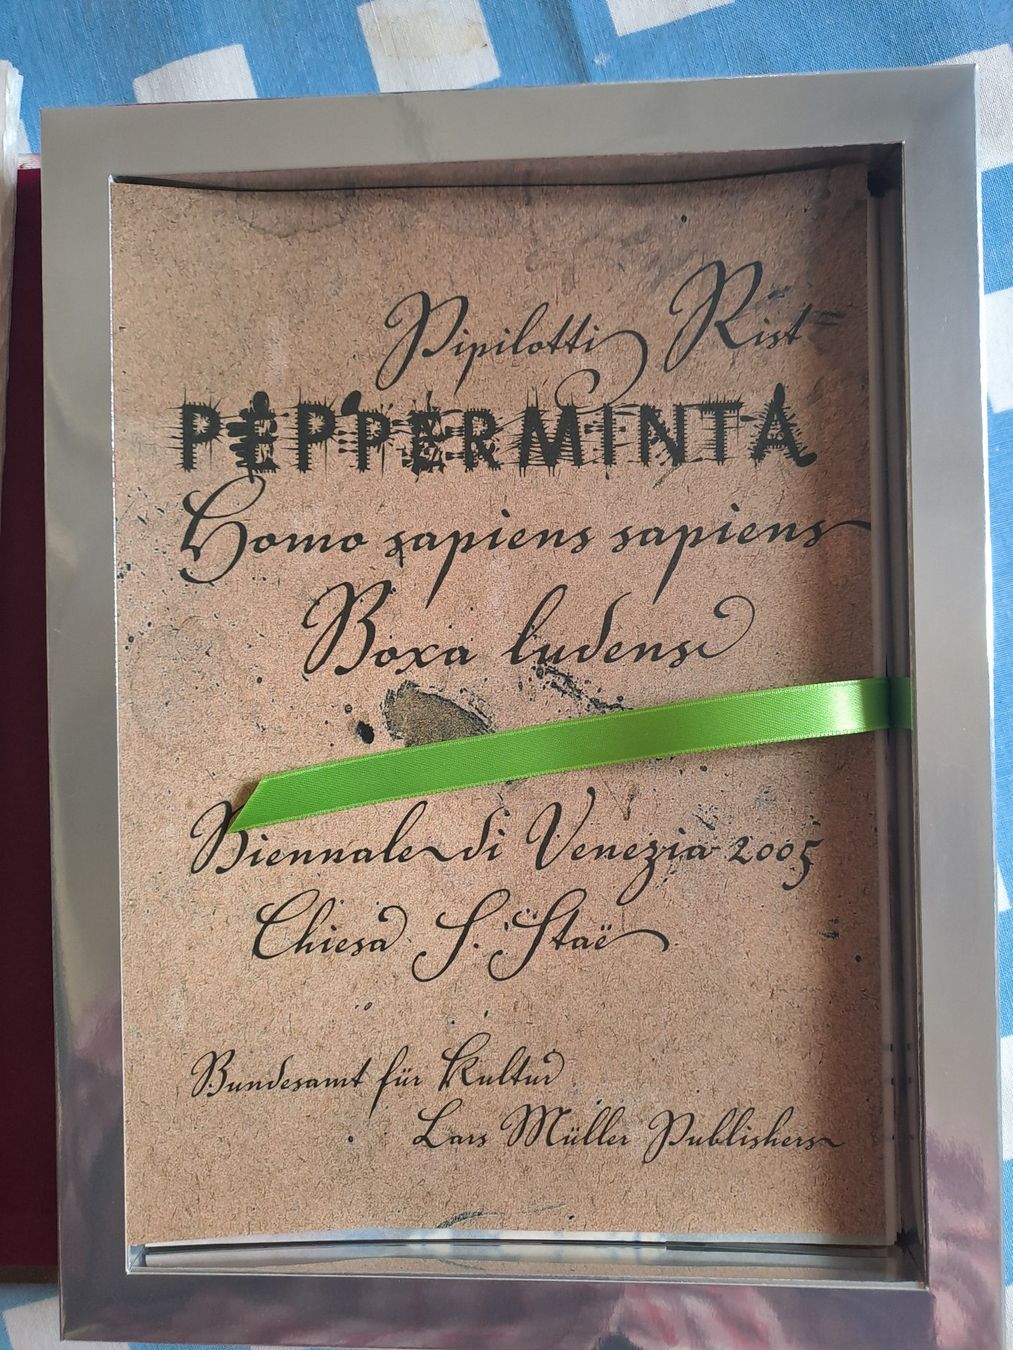 Pipilotti Rist
PEPPERMINTA
Homo sapiens sapiens
Boxa ludens
Biennale di Venezia 2005
Chiesa S. Staë
Bundesamt für Kultur
Lars Müller Publishers